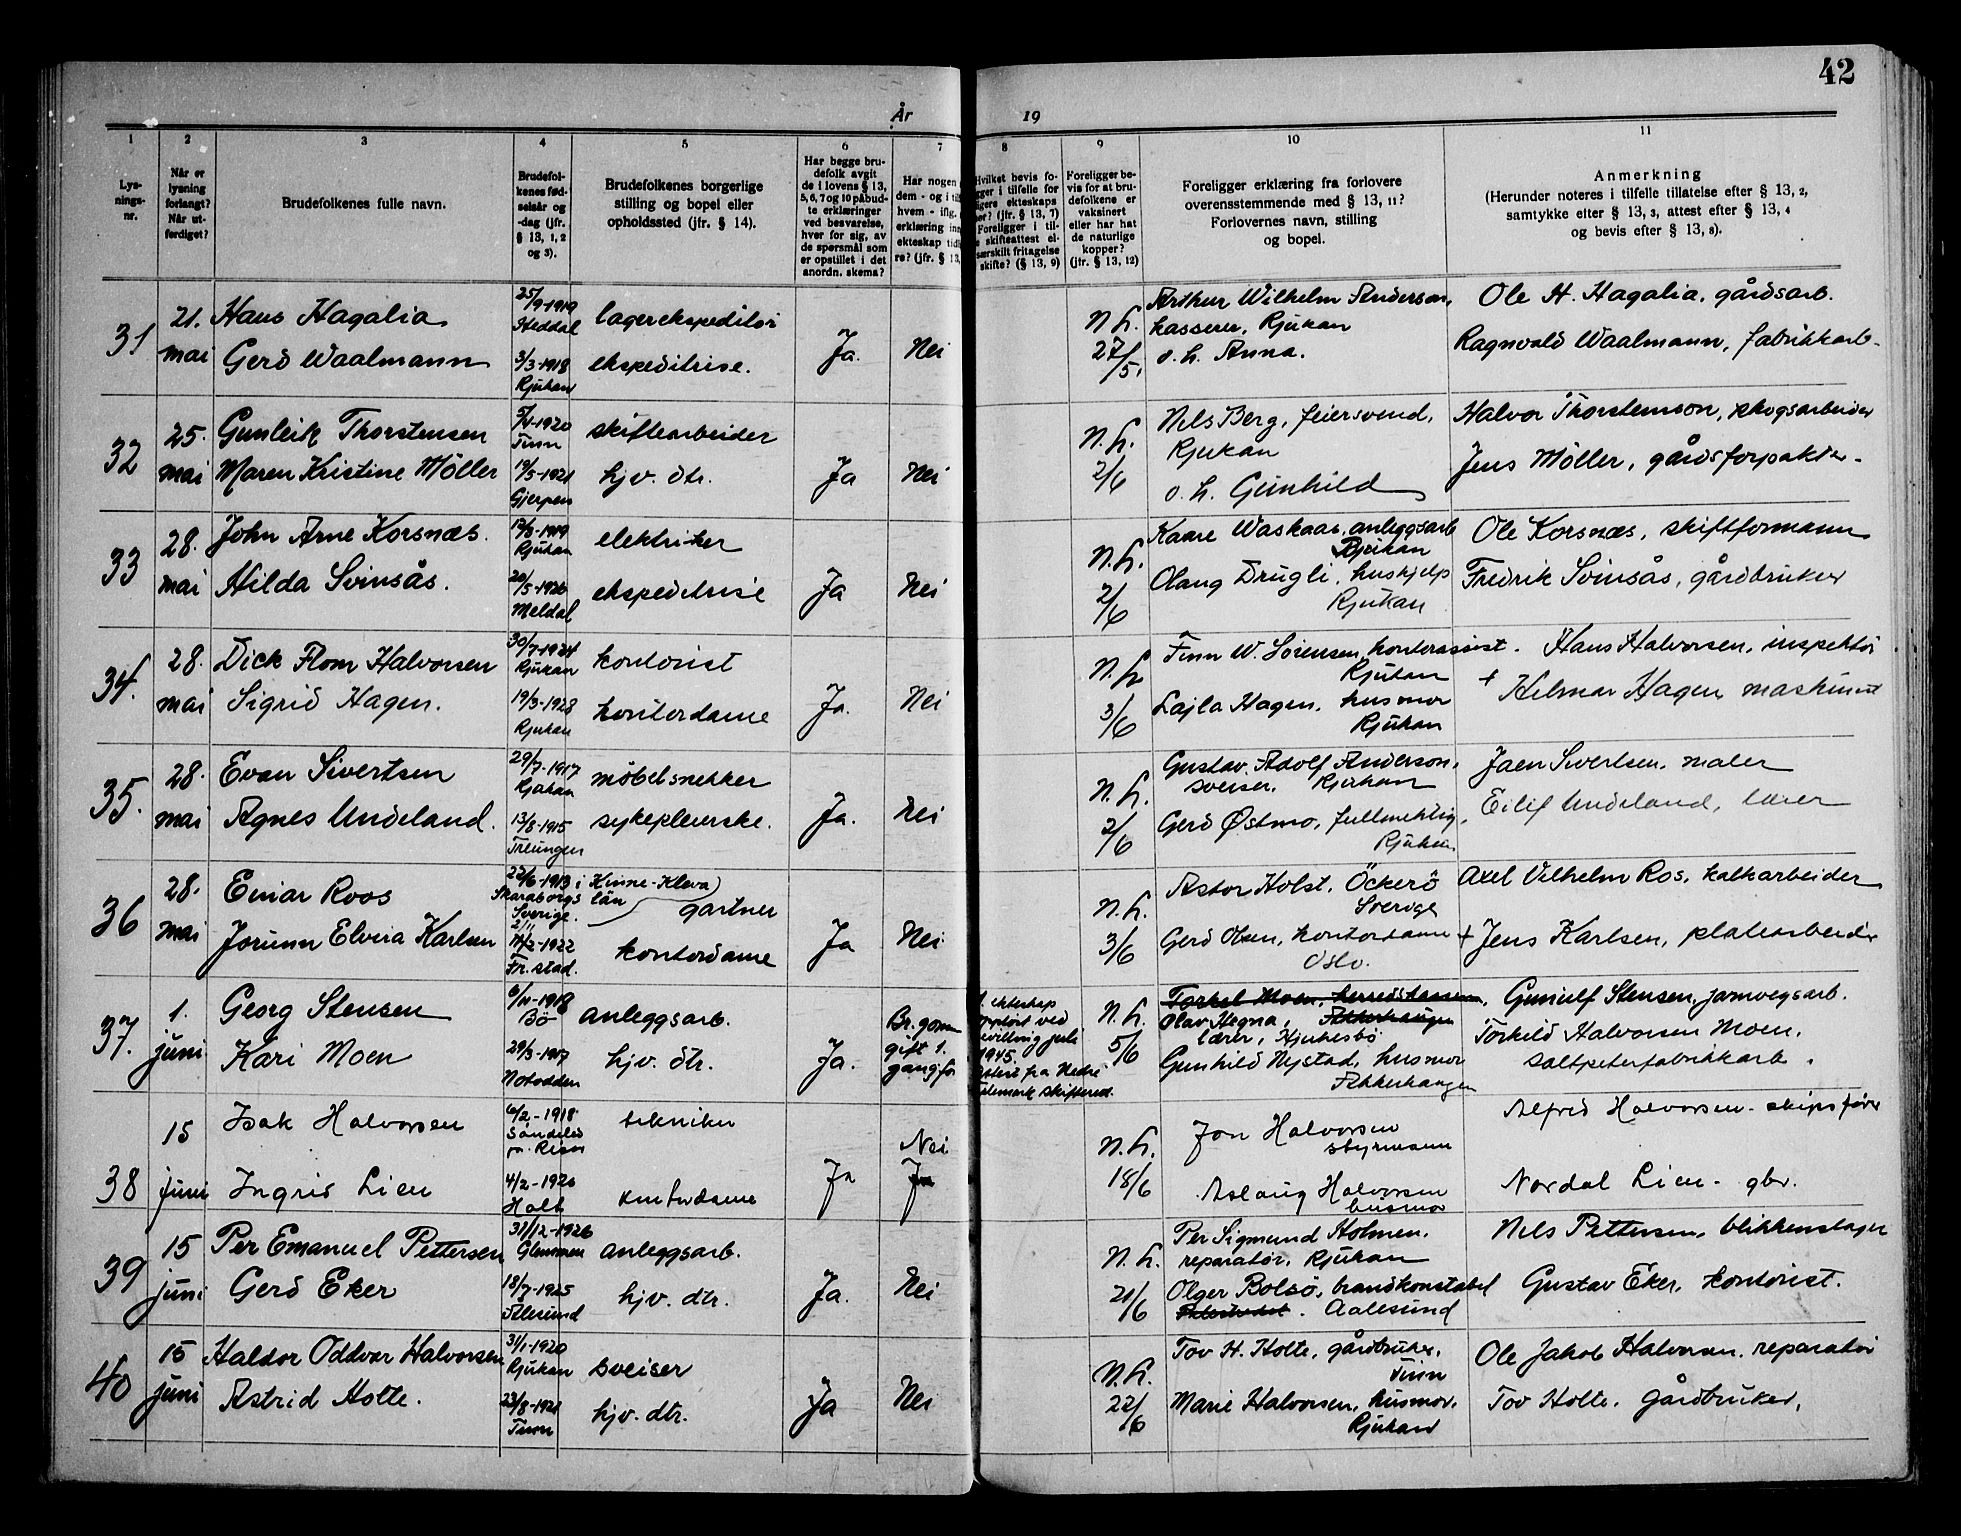 42
År 19
1 2 3 4 5 6 7 8 9 10 11
Lys-
nings-
nr.
Når er
lysning
forlangt?
Når ut-
ferdiget?
Brudefolkenes fulle navn.
Brudefol-
kenes fød-
selsår og
-dag (jfr.
§ 13, 1, 2
og 3).
Brudefolkenes borgerlige
stilling og bopel eller
opholdssted (jfr. § 14).
Har begge bru-
defolk avgit
de i lovens § 13,
5, 6, 7 og 10 påbud-
te erklæringer
ved besvarelse,
hver for sig, av
de spørsmål som
er opstillet i det
anordn. skema?
Har nogen
dem - og i til
hvem - iflg.
erklæring inn
ekteskap tidl
re? (jfr. § 13,
Hvilket bevis fo-
gger i tilfelle for
ligere ekteskaps
ør? (jfr. § 13, 7)
Foreligger i til-
e skifteattest el-
særskilt fritagelse
skifte? (§ 13, 9)
Foreligger be-
vis for at bru-
defolkene er
vaksinert
eller har hat
de naturlige
kopper?
(jfr. § 13, 12)
Foreligger erklæring fra forlovere
overensstemmende med § 13, 11?
Forlovernes navn, stilling
og bopel.
Anmerkning
(Herunder noteres i tilfelle tillatelse efter § 13, 2,
samtykke efter § 13, 3, attest efter § 13, 4
og bevis efter § 13, 8).
31
21.
mai
Hans Hagalia
Gerd Waalmann
25/9-1919
Heddal
3/3-1918
Rjukan
lagerekspeditør
ekspeditrise.
Ja.
Nei
N. h.
27/5.
Arthur Wilhelm Anderson,
kasserer, Rjukan
o. h. Anna.
Ole H. Hagalia, gårdsarb.
Ragnvald Waalmann, fabrikkarb.
32
25.
mai
Gunleik Thorstensen
Maren Kristine Møller
-1920
Tinn
19/5-1921
Gjerpen
skiftearbeider
hjv. dtr.
Ja
Nei
N. h.
2/6
Nils Berg, feiersvend,
Rjukan
o. h. Gunhild
Halvor Thorstenson, skogsarbeider
Jens Møller, gårdsforpakter.
33
28.
mai
John Arne Korsnæs.
Hilda Svinsås.
-1919
Rjukan
20/5-1926
Meldal
elektriker
ekspeditrise
Ja
Nei
N. h.
2/6
Kaare Waskaas, anleggsarb
Rjukan
Olaug Drugli, huskjelp
Rjukan
Ole Korsnæs, skiftformann
Fredrik Svinsås, gårdbruker
34.
28.
mai
Dick Flom Halvorsen
Sigrid Hagen.
30/7-1924
Rjukan
19/3-1928
Rjukan
kontorist
kontordame
Ja.
Nei
N. h
3/6
Finn W. Sørensen, kontorassist.
Rjukan
Lajla Hagen, husmor
Rjukan
Hans Halvorsen, inspektør
+ Helmar Hagen maskinist
35.
28.
mai
Evan Sivertsen
Agnes Undeland.
29/7-1917
Rjukan
13/8-1915
Treungen
møbelsnekker
sykepleierske.
Ja.
Nei
N. h.
2/6
Gustav Adolf Anderson,
sveiser. Rjukan
Gerd Østmo, fullmektig,
Rjukan
Jaen Sivertsen, maler
Eilif Undeland, lærer
36
28.
mai
Einar Roos
Jorunn Elvira Karlsen
22/6-1913 i Kinne-Kleva
Skaraborgs län
Sverige.
-1922
Fr. stad.
gartner
kontordame
Ja
Nei
N. h.
3/6
Astor Holst, Öckerö
Sverige
Gerd Olsen, kontordame
Oslo.
Axel Vilhelm Ros, kalkarbeider
+ Jens Karlsen, platearbeider
37.
1.
juni
Georg Stensen
Kari Moen
6/10-1918
Bø
29/3-1917
Notodden
anleggsarb.
hjv. dtr.
Ja.
Br.gom
gift 1.
gang før
ekteskap
oppløst ved
bevilling juli
1945.
Attest fra Nedre
Telemark skifterød.
N. h.
5/6
Torkel Moen, herredskasserer,
Olav Hegna, Akkerhaugen
lærer, Hjuksebø
Gunhild Nystad, husmor
Akkerhaugen
Gunulf Stensen, jarnvegsarb.
Torkild Halvorsen Moen,
saltpeterfabrikkarb.
38
15
juni
Isak Halvorsen
Ingrid Lien
6/2-1918
Søndeled
pr. Risør
4/2-1920
Holt
tekniker
kontordame
Ja
Nei
Ja
N. h.
18/6
Jon Halvorsen
styrmann
Aslaug Halvorsen
husmor
Alfred Halvorsen - skipsfører
Nordal Lien - gbr.
39
15
juni
Per Emanuel Pettersen
Gerd Eker
31/12-1926
Glemmen
18/7-1925
Ålesund
anleggsarb.
hjv. dtr.
Ja.
Nei
N. h.
21/6
Per Sigmund Holmen,
reparatør, Rjukan
Olger Bolsø, brandkonstabel
Aalesund
Nils Pettersen, blikkenslager
Gustav Eker, kontorist.
40
15
juni
Haldor Oddvar Halvorsen
Astrid Holte.
31/1-1920
Rjukan
23/8-1921
Tinn
sveiser
hjv. dtr.
Ja
Nei
N. h.
22/6
Tov H. Holte, gårdbruker,
Tinn
Marie Halvorsen, husmor,
Rjukan
Ole Jakob Halvorsen, reparatør
Tov Holte, gårdbruker,